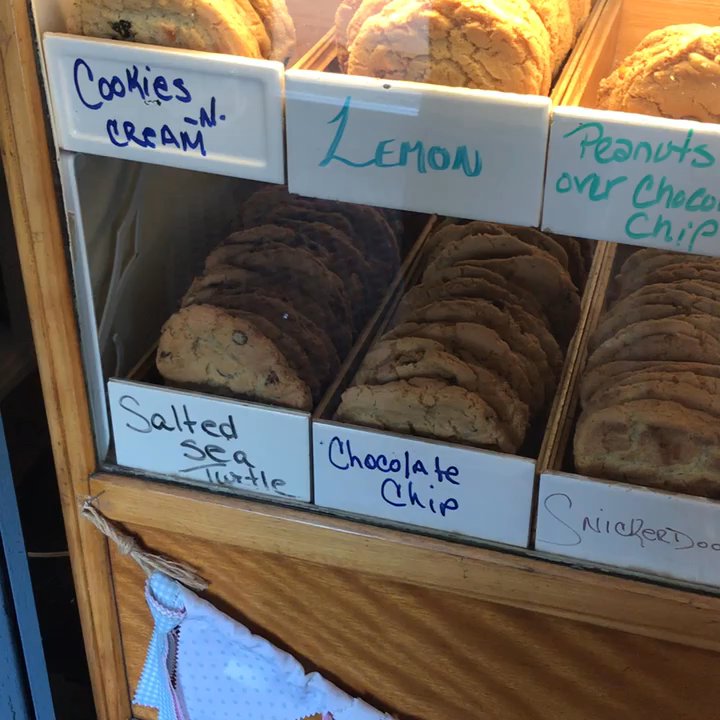 Cookies
-N.
CREAM
LEMON
Peanuts
over Choco
Chip
Salted
sea
Turtle
Chocolate
Chip
SnickerDoo